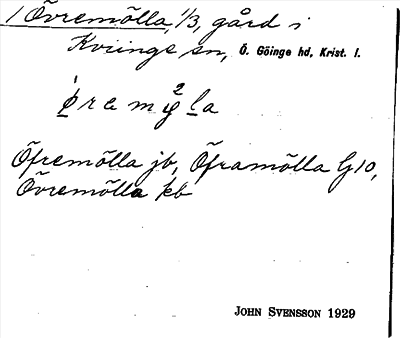 1 Övremölla, 1/3, gård i
Kviinge sn, Ö. Göinge hd, Krist. l.
Öfremölla jb, Öframölla G10,
Övremölla kb
JOHN SVENSSON 1929